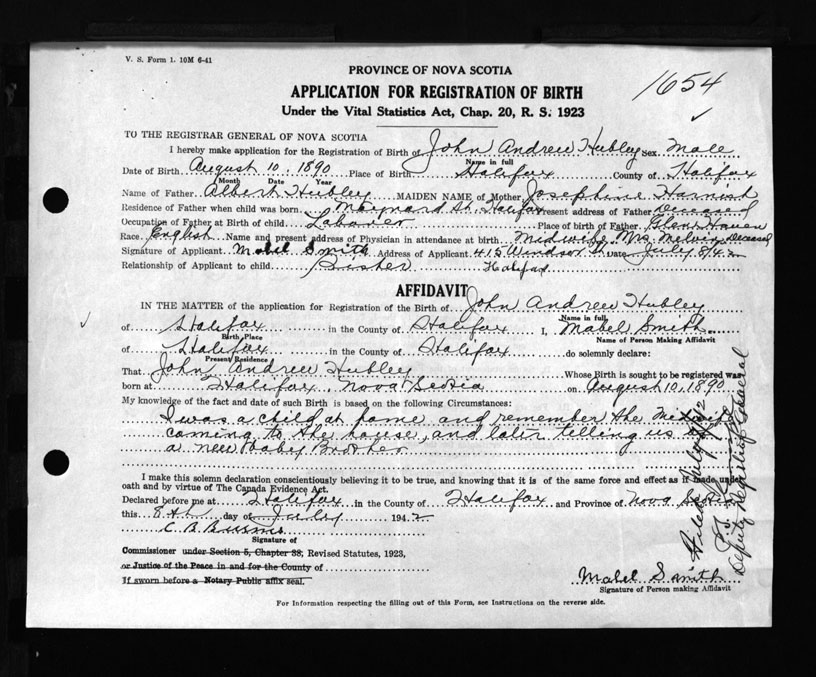 V. S. Form 1. 10M 6-41
PROVINCE OF NOVA SCOTIA
1654
APPLICATION FOR REGISTRATION OF BIRTH
Under the Vital Statistics Act, Chap. 20, R. S. 1923
TO THE REGISTRAR GENERAL OF NOVA SCOTIA
I hereby make application for the Registration of Birth of John Andrew Hubley Sex Male
Name in full
Date of Birth August 10, 1890 Place of Birth Halifax County of Halifax
Month Date Year
Name of Father Albert Hubley MAIDEN NAME of Mother Josephine Harnish
Residence of Father when child was born Maynard St. Halifax Present address of Father Deceased
Occupation of Father at Birth of child Laborer Place of birth of Father Glen Haven
Race English Name and present address of Physician in attendance at birth Midwife, Mrs. Melvin Deceased
Signature of Applicant Mabel Smith Address of Applicant 415 Windsor St Date July 8/42
Relationship of Applicant to child Sister Halifax
AFFIDAVIT
IN THE MATTER of the application for Registration of the Birth of John Andrew Hubley
Name in full
of Halifax in the County of Halifax I, Mabel Smith
Birth Place Name of Person Making Affidavit
of Halifax in the County of Halifax do solemnly declare:
Present Residence
That John Andrew Hubley Whose Birth is sought to be registered was
born at Halifax, Nova Scotia on August 10, 1890
My knowledge of the fact and date of such Birth is based on the following Circumstances:
I was a child at home and remember the Midwife
coming to the house, and later telling us of
a new Baby Brother
I make this solemn declaration conscientiously believing it to be true, and knowing that it is of the same force and effect as if made under
oath and by virtue of The Canada Evidence Act.
Declared before me at Halifax in the County of Halifax and Province of Nova Scotia
this 8th day of July 1942
C B
Signature of
Commissioner under Section 5, Chapter 38, Revised Statutes, 1923,
or Justice of the Peace in and for the County of
If sworn before a Notary Public affix seal.
Mabel Smith
Signature of Person making Affidavit
For Information respecting the filling out of this Form, see Instructions on the reverse side.
Filed July
Deputy Registrar General